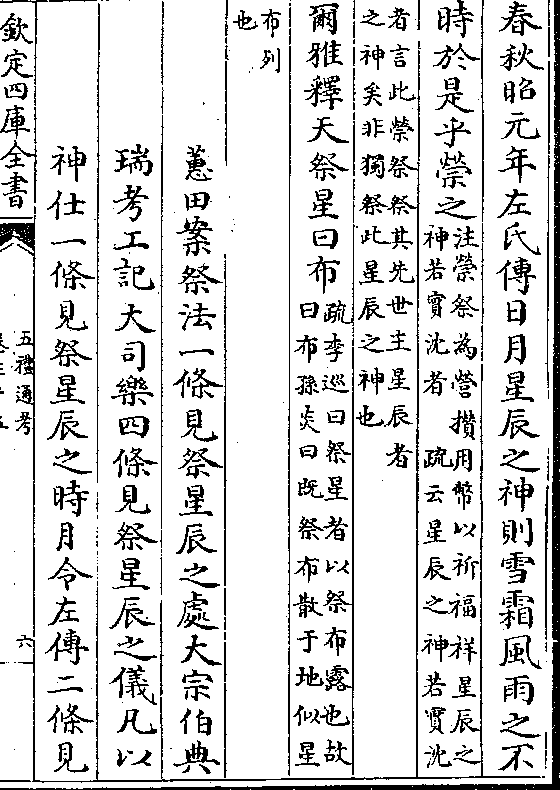 春秋昭元年左氏傳日月星辰之神則雪霜風雨之不
時於是乎禜之注禜祭為營攢用幣以祈福祥星辰之
神若實沈者　疏云星辰之神若實沈
者言此禜祭祭其先世主星辰者
之神矣非獨祭此星辰之神也
爾雅釋天祭星曰布疏李巡曰祭星者以祭布露也故
曰布孫炎曰既祭布散于地似星
布列
也
蕙田案祭法一條見祭星辰之處大宗伯典
瑞考工記大司樂四條見祭星辰之儀凡以
神仕一條見祭星辰之時月令左傳二條見
欽定四庫全書
五禮通考
六